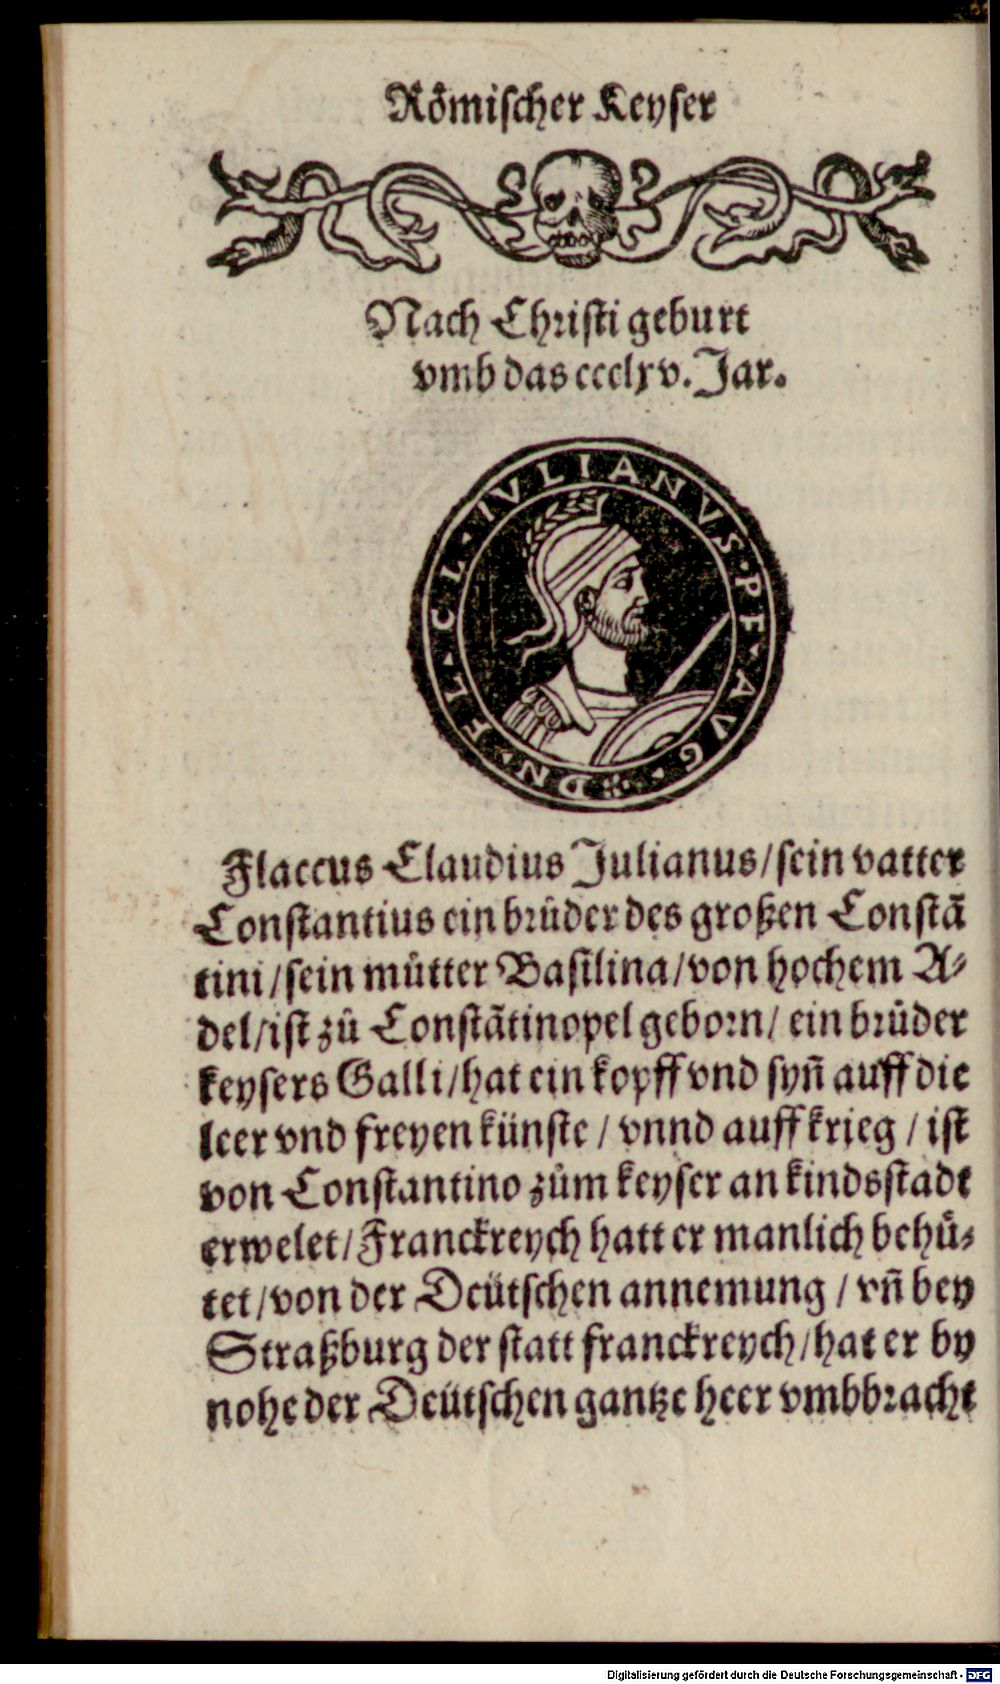 Römischer Keyser
Nach Christi geburt
vmb das ccclxv. Jar.
DN · FL · CL · IVLIANVS · PF · AVG ·
Flaccus Claudius Julianus/sein vatter
Constantius ein brůder des großen Constā
tini/sein můtter Basilina/von hochem A⸗
del/ist zů Constātinopel geborn/ ein brůder
keysers Galli/hat ein kopff vnd syn̄ auff die
leer vnd freyen künste / vnnd auff krieg / ist
von Constantino zům keyser an kindsstadt
erwelet/Franckreych hatt er manlich behů⸗
tet/von der Deütschen annemung / vn̄ bey
Straßburg der statt franckreych/hat er by
nohe der Deütschen gantze heer vmbbracht
Digitalisierung gefördert durch die Deutsche Forschungsgemeinschaft - DFG